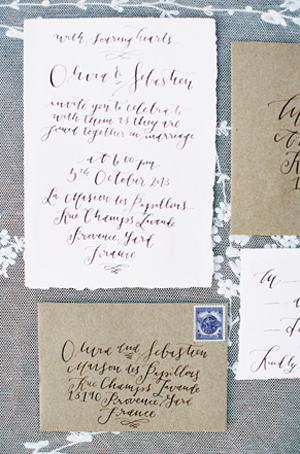 with soaring hearts
Olivia & Sebastien
invite you to celebrate
with them as they are
joined together in marriage
at 6:00 pm
5th October 2013
La Maison des Papillons
Rue Champs Lavande
Provence, Gard
France
Olivia and Sebastien
Maison des Papillons
Rue Champs Lavande
13190 Provence, Gard
France
Kindly